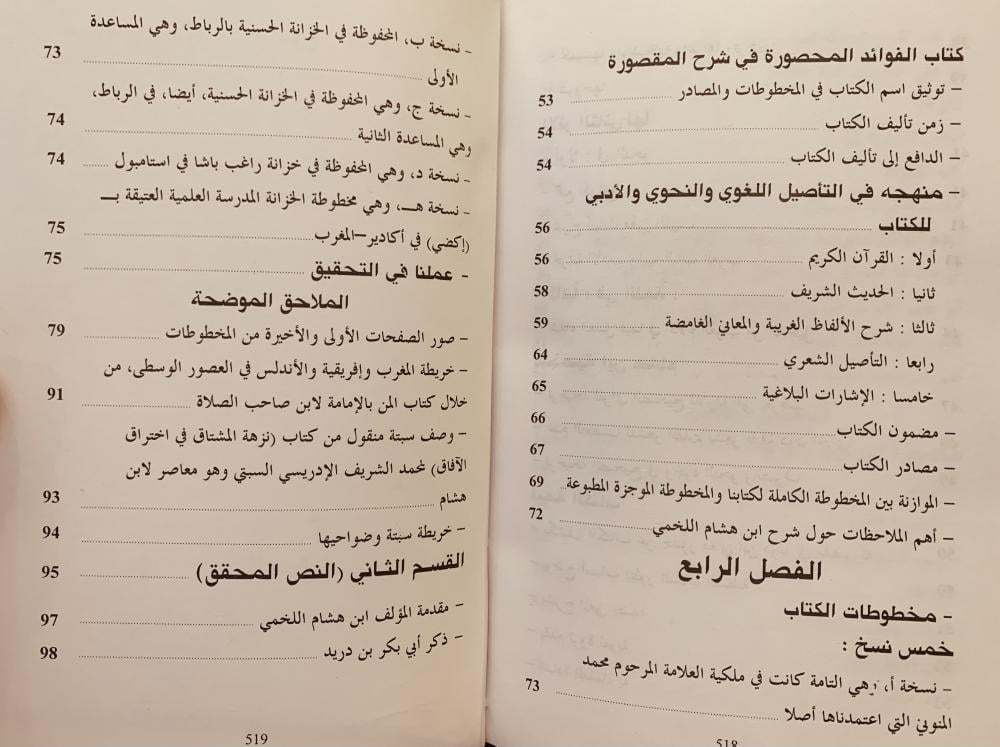 كتاب الفوائد المحصورة في شرح المقصورة
– توثيق اسم الكتاب في المخطوطات والمصادر ........ 53
– زمن تأليف الكتاب ........ 54
– الدافع إلى تأليف الكتاب ........ 54
– منهجه في التأصيل اللغوي والنحوي والأدبي
للكتاب ........ 56
أولا : القرآن الكريم ........ 56
ثانيا : الحديث الشريف ........ 58
ثالثا : شرح الألفاظ الغريبة والمعاني الغامضة ........ 59
رابعا : التأصيل الشعري ........ 64
خامسا : الإشارات البلاغية ........ 65
– مضمون الكتاب ........ 66
– مصادر الكتاب ........ 67
– الموازنة بين المخطوطة الكاملة لكتابنا والمخطوطة الموجزة المطبوعة.. 69
– أهم الملاحظات حول شرح ابن هشام اللخمي ........ 72
الفصل الرابع
– مخطوطات الكتاب
خمس نسخ :
– نسخة أ، وهي التامة كانت في ملكية العلامة المرحوم محمد
المنوني التي اعتمدناها أصلا ........ 73
518
– نسخة ب، المحفوظة في الخزانة الحسنية بالرباط، وهي المساعدة
الأولى ........ 73
– نسخة ج، وهي المحفوظة في الخزانة الحسنية، أيضا، في الرباط،
وهي المساعدة الثانية ........ 74
– نسخة د، وهي المحفوظة في خزانة راغب باشا في استامبول ........ 74
– نسخة هـ، وهي مخطوطة الخزانة المدرسة العلمية العتيقة بـ
(إكضي) في أكادير–المغرب ........ 75
– عملنا في التحقيق ........ 75
الملاحق الموضحة
– صور الصفحات الأولى والأخيرة من المخطوطات ........ 79
– خريطة المغرب وإفريقية والأندلس في العصور الوسطى، من
خلال كتاب المن بالإمامة لابن صاحب الصلاة ........ 91
– وصف سبتة منقول من كتاب (نزهة المشتاق في اختراق
الآفاق) لمحمد الشريف الإدريسي السبتي وهو معاصر لابن
هشام ........ 93
– خريطة سبتة وضواحيها ........ 94
القسم الثاني (النص المحقق) ........ 95
– مقدمة المؤلف ابن هشام اللخمي ........ 97
– ذكر أبي بكر بن دريد ........ 98
519